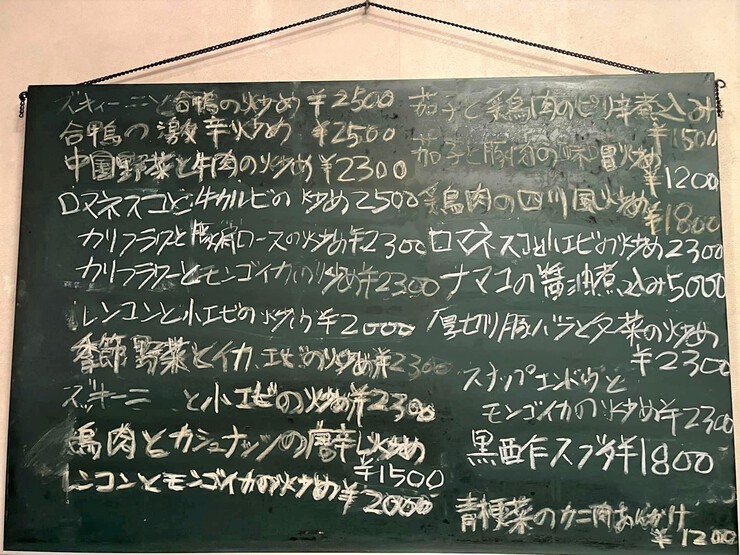 ズッキーニと合鴨の炒め ¥2500
合鴨の激辛炒め ¥2500
中国野菜と牛肉の炒め ¥2300
ロマネスコと牛カルビの炒め2500
カリフラワーと豚肩ロースの炒め¥2300
カリフラワーとモンゴイカの炒め¥2300
レンコンと小エビの炒め¥2000
季節野菜とイカ、エビの炒め¥2300
ズッキーニ と小エビの炒め¥2300
鶏肉とカシューナッツの唐辛し炒め
¥1500
レンコンとモンゴイカの炒め¥2000
茄子と鶏肉のピリ辛煮込み
¥1500
茄子と豚肉の味噌炒め
¥1200
鶏肉の四川風炒め
¥1800
ロマネスコと小エビの炒め2300
ナマコの醤油煮込み5000
厚切り豚バラと夕菜の炒め
¥2300
スナップエンドウと
モンゴイカの炒め¥2300
黒酢スブタ¥1800
青梗菜のカニ肉あんかけ
¥1200